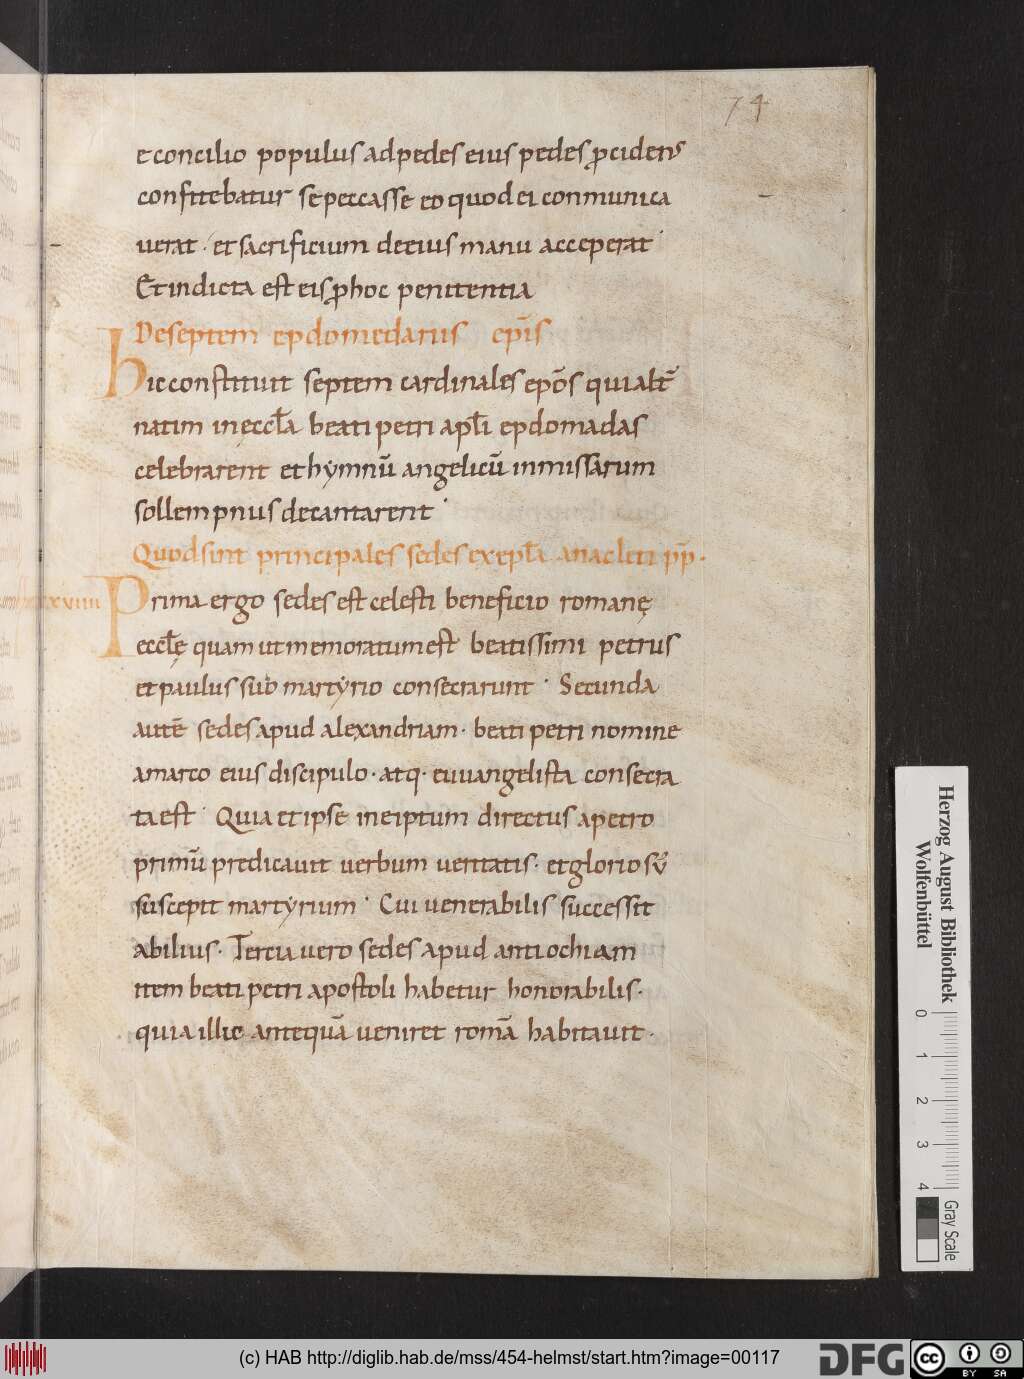 74
e concilio populus ad pedes eius pedes ꝓcidens
confitebatur se peccasse eo quod ei conmunica
uerat · et sacrificium de eius manu acceperat ·
Et indicta est eis ꝓ hoc penitentia
De septem epdomedariis ep̄is
Hic constituit septem cardinales ep̄os qui alt̄
natim in ęccl̄a beati petri apl̄i epdomadas
celebrarent et hymnū angelicū in missarum
sollempniis decantarent ·
Quod sint principales sedes ex epl̄a anacleti pp̄ ·
Prima ergo sedes est celesti beneficio romanę
eccl̄ę quam ut memoratum est beatissimi petrus
et paulus sub martyrio consecrarunt · Secunda
autē sedes apud alexandriam · beati petri nomine
a marco eius discipulo · atq · euuangelista consecra
ta est · Quia et ipse in eiptum directus a petro
primū predicauit uerbum ueritatis · et gloriosū
suscepit martyrium · Cui uenerabilis successit
abilius · Tercia uero sedes apud antiochiam
item beati petri apostoli habetur honorabilis ·
quia illic antequā ueniret romā habitauit ·
Herzog August Bibliothek
Wolfenbüttel
0 1 2 3 4
Gray Scale
(c) HAB http://diglib.hab.de/mss/454-helmst/start.htm?image=00117
DFG
cc BY SA